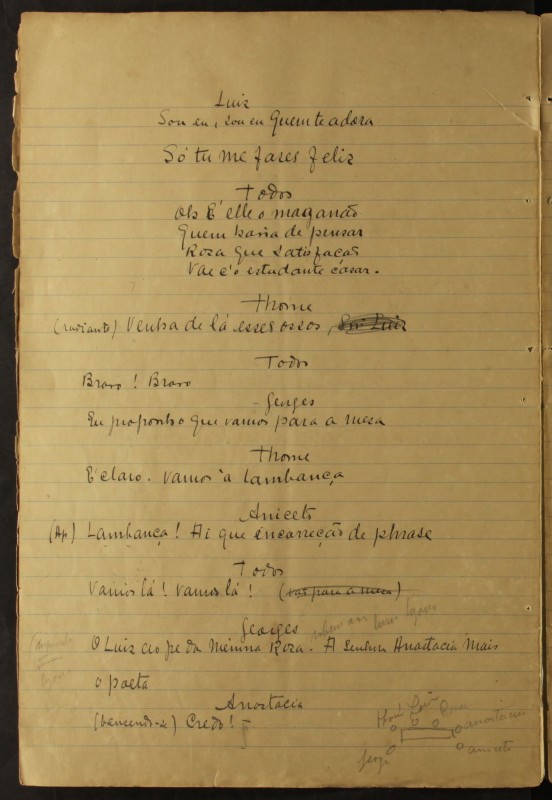 Luiz
Sou eu, sou eu Quem te adora
Só tu me fazes feliz
Todos
Oh E' elle o maganão
Quem havia de pensar
Roza que satisfação
Vae c'o estudante casar.
Thome
(radiante) Venha de lá esses ossos, Snr Luiz
Todos
Bravo! Bravo
Georges
Eu proponho que vamos para a mesa
Thome
E' claro. Vamos à lambança
Aniceto
(Ap) Lambança! Ai que encorreção de phrase
Todos
Vamos lá! Vamos lá! (vão para a mesa)
Georges
O Luiz ao pé da Menina Roza. A Senhora Anastacia Mais
o poeta
Anastacia
(benzendo-se) Credo! –
Thomé Luiz Rosa
anastacia
aniceto
Jorge